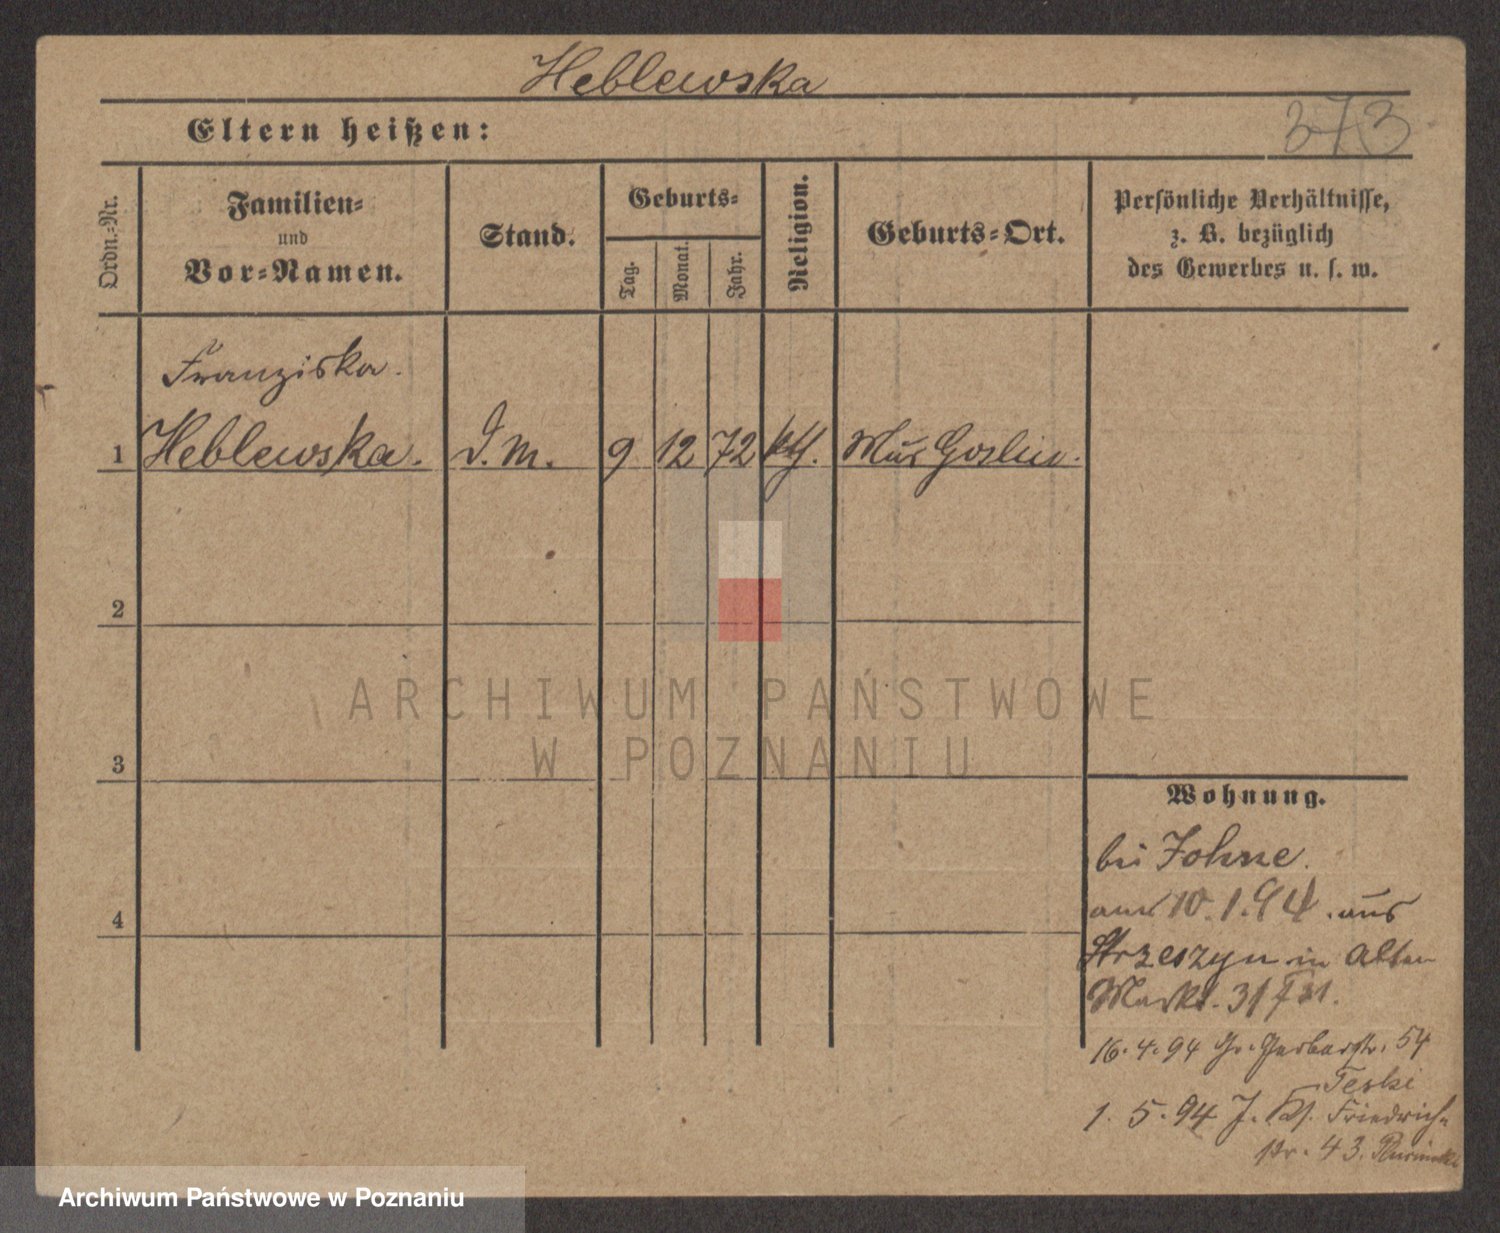 Heblewska
373
Eltern heißen:
Ordn.-Nr.
Familien-
und
Vor-Namen.
Stand.
Geburts-
Tag.
Monat.
Jahr.
Religion.
Geburts-Ort.
Persönliche Verhältnisse,
z. B. bezüglich
des Gewerbes u. s. w.
Franziska.
1 Heblewska. D.M. 9 12 72 kth. Mur Goslin.
2
3
4
ARCHIWUM PAŃSTWOWE
W POZNANIU
Wohnung.
bei Johne.
10.1.94. aus
Strzeszyn in Alten
Markt. 31
16.4.94 Gr. Gerberstr. 54
Teski
1. 5.94 J. Friedrich-
str. 43.
Archiwum Państwowe w Poznaniu